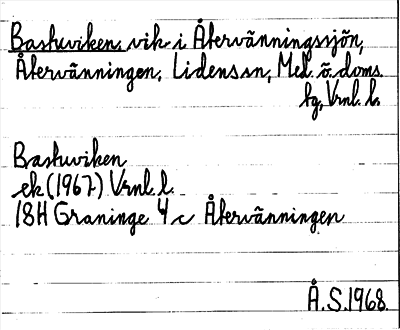 Baskuviken, vik i Återvänningssjön,
Återvänningen, Lidens sn, Mel. ö. doms.
hg, Vrnl. l.
Baskuviken
ek (1967) Vrnl. l.
18H Graninge 4 c Återvänningen
Å.S.1968.